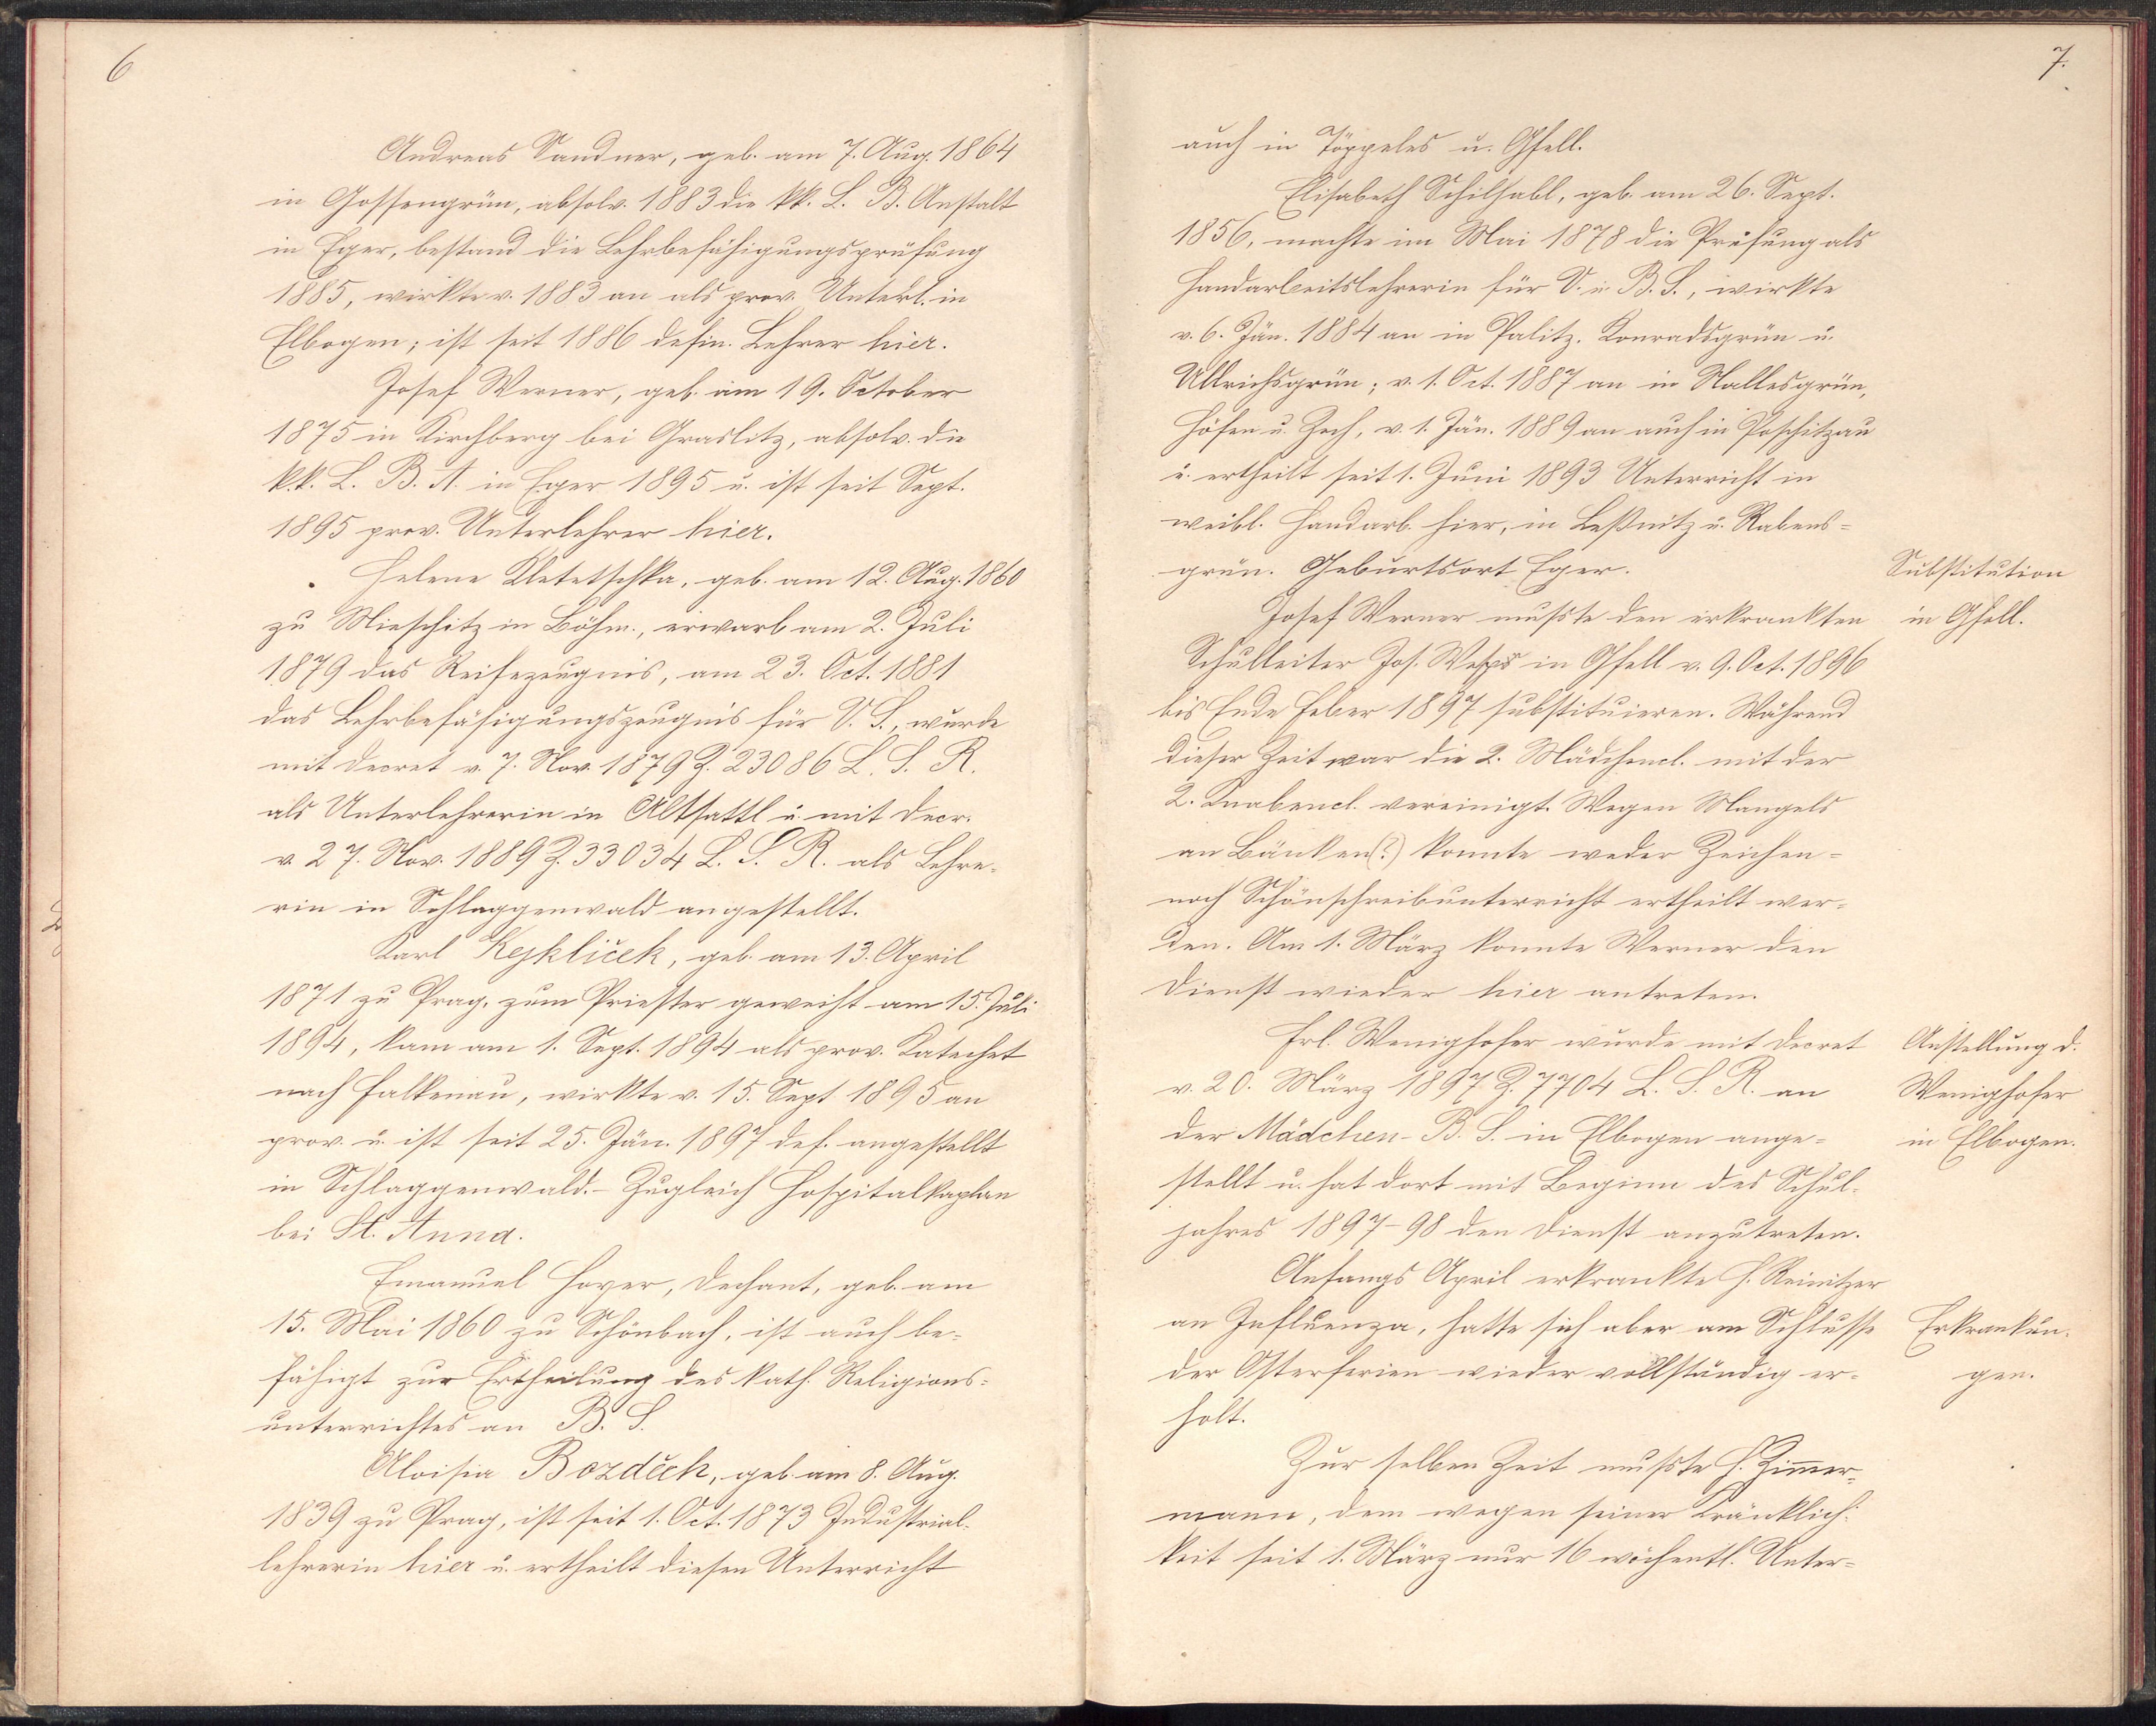 6
Andreas Sandner, geb. am 7. Aug. 1864
in Gossengrün, absolv. 1883 die kk. L. B. Anstalt
in Eger, bestand die Lehrbefähigungsprüfung
1885, wirkte v. 1883 an als prov. Unterl. in
Elbogen; ist seit 1886 defin. Lehrer hier.
Josef Werner, geb. am 19. October
1875 in Kirchberg bei Graslitz, absolv. die
k.k. L. B. A. in Eger 1895 u. ist seit Sept.
1895 prov. Unterlehrer hier.
Helene Kletetschka, geb. am 12. Aug. 1860
zu Mieschitz in Böhm., erwarb am 2. Juli
1879 das Reifezeugnis, am 23. Oct. 1881
das Lehrbefähigungszeugnis für V. S., wurde
mit Decret v. 7. Nov. 1879 Z. 23086 L. S. R.
als Unterlehrerin in Altsattl u. mit Decr.
v. 27. Nov. 1889 Z. 33034 L. S. R. als Lehre-
rin in Schlaggenwald angestellt.
Karl Kejkliček, geb. am 13. April
1871 zu Prag, zum Priester geweiht am 15. Juli
1894, kam am 1. Sept. 1894 als prov. Katechet
nach Falkenau, wirkte v. 15. Sept 1895 an
prov. u. ist seit 25. Jän. 1897 def. angestellt
in Schlaggenwald. - Zugleich Hospitalkaplan
bei St. Anna.
Emanuel Hoyer, Dechant, geb. am
15. Mai 1860 zu Schönbach, ist auch be-
fähigt zur Ertheilung des kath. Religions-
unterrichtes an B. S.
Aloisia Bozděch, geb. am 8. Aug.
1839 zu Prag, ist seit 1. Oct. 1873 Industrial-
lehrerin hier u. ertheilt diesen Unterricht
7.
auch in Töppeles u. Gfell.
Elisabeth Schilhabl, geb. am 26. Sept.
1856, machte im Mai 1878 die Prüfung als
Handarbeitslehrerin für V. u. B. S., wirkte
v. 6. Jän. 1884 an in Palitz, Konradsgrün u.
Ullrichsgrün; v. 1. Oct. 1887 an in Nallesgrün,
Höfen u. Zech, v. 1. Jän. 1889 an auch in Poschitzau
u. ertheilt seit 1. Juni 1893 Unterricht in
weibl. Handarb. hier, in Leßnitz u. Rabens-
grün. Geburtsort Eger.
Substitution
in Gfell.
Josef Werner musste den erkrankten
Schulleiter Jos. in Gfell v. 9. Oct. 1896
bis Ende Feber 1897 substituieren. Während
dieser Zeit war die 2. Mädchencl. mit der
2. Knabencl. vereinigt. Wegen Mangels
an Bänken(?) konnte weder Zeichen-
noch Schönschreibunterricht ertheilt wer-
den. Am 1. März konnte Werner den
Dienst wieder hier antreten.
Anstellung d.
Wenighofer
in Elbogen.
Frl. Wenighofer wurde mit Decret
v. 20. März 1897 Z. 7704 L. S. R. an
der Mädchen-B. S. in Elbogen ange-
stellt u. hat dort mit Beginn des Schul-
jahres 1897-98 den Dienst anzutreten.
Anfangs April erkrankte H. Reinitzer
an Influenza, hatte sich aber am Schlusse
der Osterferien wieder vollständig er-
holt.
Erkrankun-
gen.
Zur selben Zeit musste H. Zimmer-
mann, dem wegen seiner Kränklich-
keit seit 1. März nur 16 wöchentl. Unter-